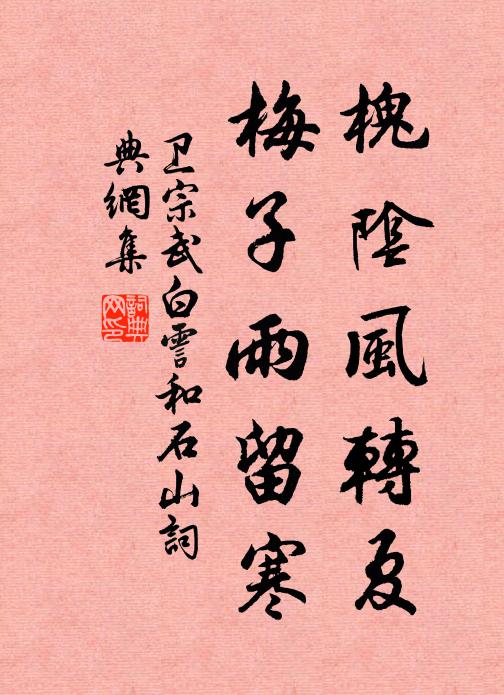 槐陰風轉夏
梅子雨留寒
卫宗武白雲和石山詞
典網集
詞典网印